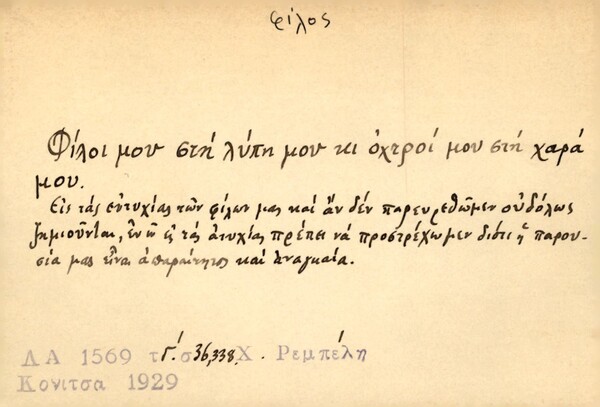 φίλος
Φίλοι μου στή λύπη μου κι ὀχτροί μου στή χαρά
μου.
Εἰς τάς εὐτυχίας τῶν φίλων μας καί ἄν δέν παρευρεθῶμεν οὐδόλως
ζημιοῦνται, ἐν ᾧ εἰς τάς ἀτυχίας πρέπει νά προστρέχωμεν διότι ἡ παρου-
σία μας εἶναι ἀπαραίτητος καί ἀναγκαία.
ΛΑ 1569 τ. Γ΄. σ. 36,338. Χ. Ρεμπέλη
Κονιτσα 1929